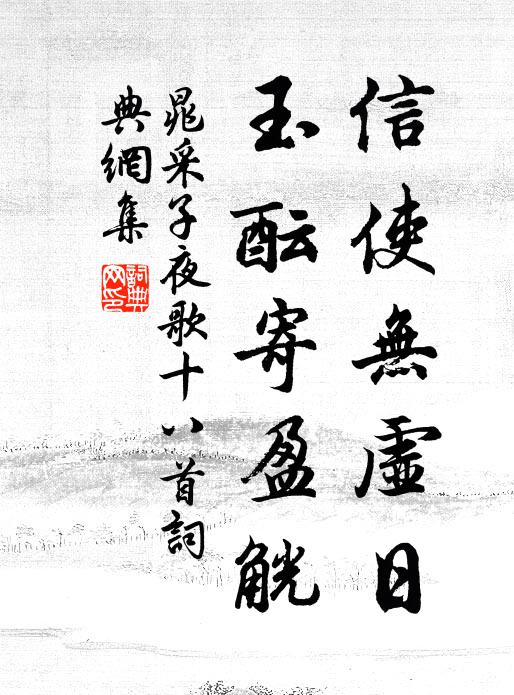 信使無虛日
玉醞寄盈觥
晁采子夜歌十八首詞
典網集
詞典網印